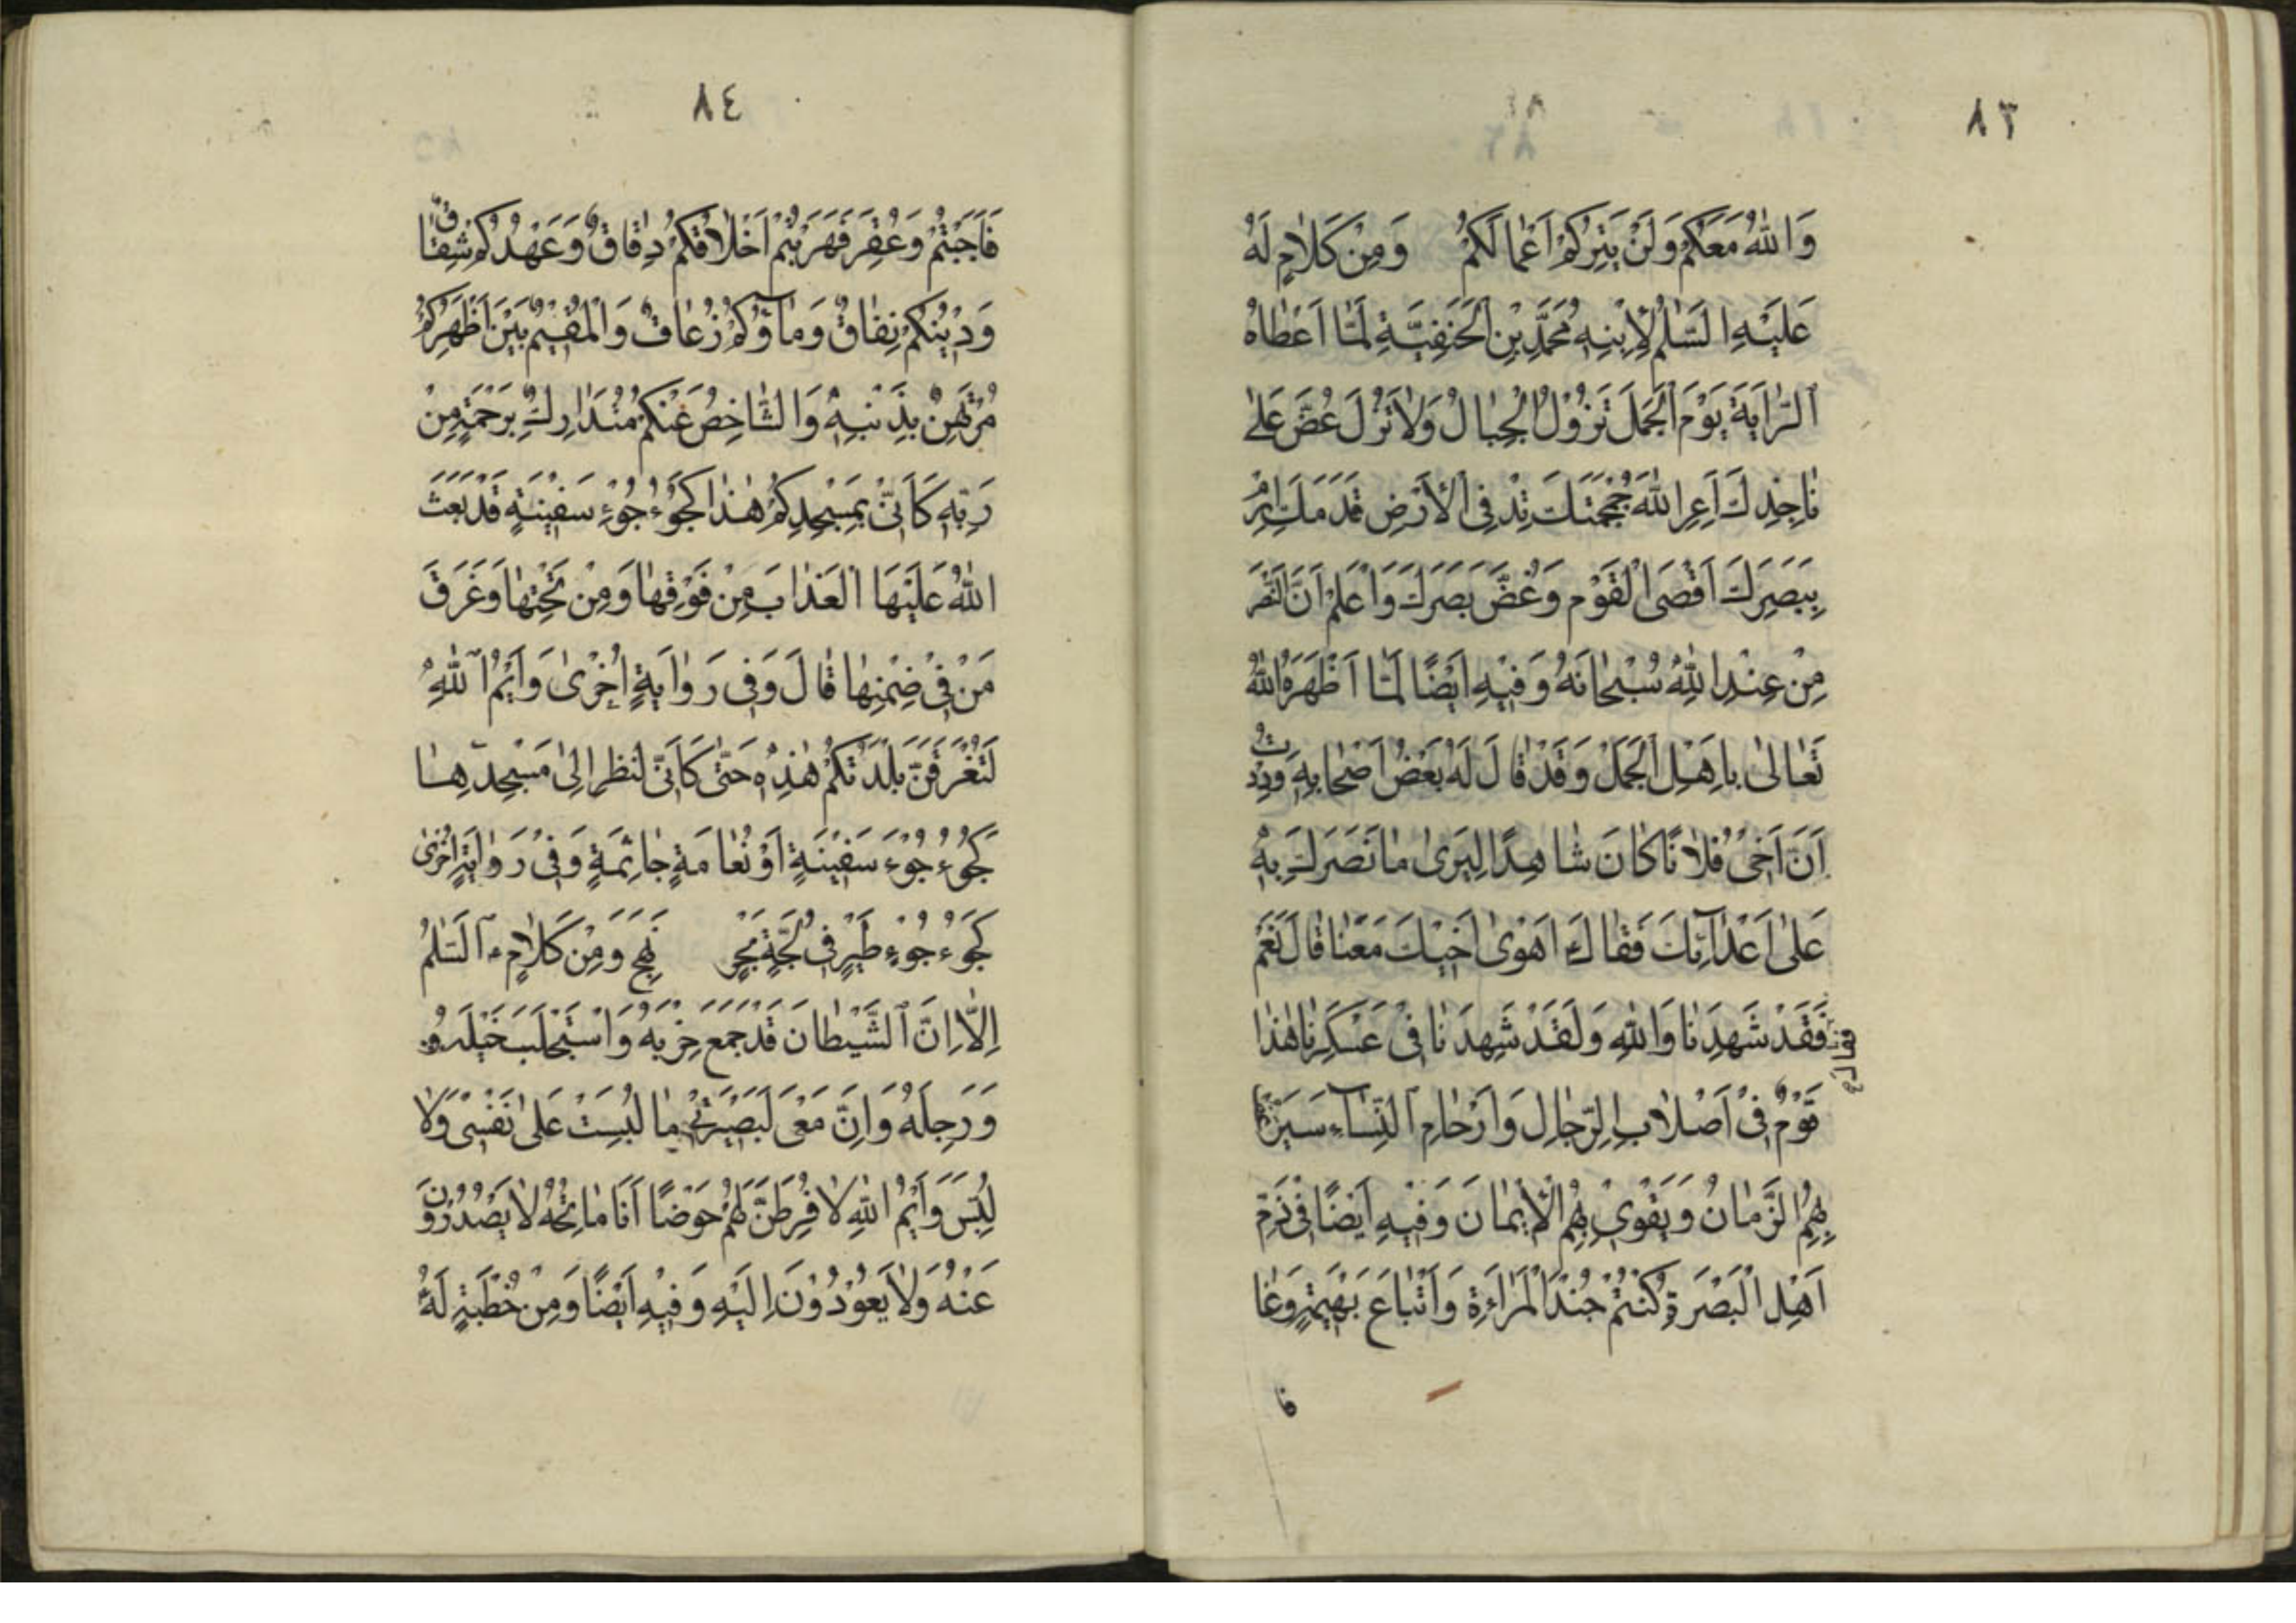 ٨٣
وَاللهُ مَعَكُمْ وَلَنْ يَتِرَكُمْ اَعْمالَكُمْ وَمِنْ كَلامٍ لَهُ
عَلَيْهِ السَّلمُ لِابْنِهِ مُحَمَّدِ بْنِ الْحَنَفِيَّةِ لَمَّا اَعْطاهُ
الرَّايَةَ يَوْمَ الْجَمَلِ تَزُوْلُ الْجِبالُ وَلاَ تَزُلْ عُضَّ عَلى
ناجِذِكَ اَعِرِ اللهَ جُمْجُمَتَكَ تِدْ فِى الْاَرْضِ قَدَمَكَ اِرْمِ
بِبَصَرِكَ اَقْصَى الْقَوْمِ وَغُضَّ بَصَرَكَ وَاعْلَمْ اَنَّ النَّصْرَ
مِنْ عِنْدِ اللهِ سُبْحانَهُ وَفِيْهِ اَيْضًا لَمَّا اَظْهَرَهُ اللهُ
تَعالى باِهْلِ الْجَمَلِ وَقَدْ قالَ لَهُ بَعْضُ اَصْحابِهِ وَدِدْتُ
اَنَّ اَخِىْ فُلانًا كانَ شاهِدًا لِيَرى ما نَصَرَكَ بِهِ
عَلى اَعْدائِكَ فَقالَ اَهَوى اَخِيْكَ مَعَنا قالَ نَعَمْ
فَقَدْ شَهِدَنا وَاللهِ وَلَقَدْ شَهِدَنا فِىْ عَسْكَرِنا هذا
فقال
قَوْمٌ فِىْ اَصْلابِ الرِّجالِ وَاَرْحامِ النِّساءِ سَيَرْعَفُ
بِهِمُ الزَّمانُ وَيَقْوى بِهِمُ الْاِيْمانَ وَفِيْهِ اَيْضًا فِىْ ذَمِّ
اَهْلِ الْبَصْرَةِ كُنْتُمْ جُنْدَ الْمَرْاَءَةِ وَاَتْباعَ بَهِيْمَةٍ رَغا
فا
٨٤
فَاَجَبْتُمْ وَعُقِرَ فَهَرَبْتُمْ اَخْلاقُكُمْ دِقاقٌ وَعَهْدُكُمْ شِقاقٌ
وَدِيْنُكُمْ نِفاقٌ وَماؤُكُمْ زُعاقٌ وَالْمُقِيْمُ بَيْنَ اَظْهُرِكُمْ
مُرْتَهَنٌ بِذَنْبِهِ وَالشَّاخِصُ عَنْكُمْ مُتَدارِكٌ بِرَحْمَةٍ مِنْ
رَبِّهِ كَاَنِّىْ بِمَسْجِدِكُمْ هذا كَجُؤْجُؤِ سَفِيْنَةٍ قَدْ بَعَثَ
اللهُ عَلَيْهَا الْعَذابَ مِنْ فَوْقِها وَمِنْ تَحْتِها وَغَرَقَ
مَنْ فِىْ ضِمْنِها قالَ وَفِى رَوايَةٍ اُخْرى وَاَيْمُ اللهِ
لَتَغْرَقَنَّ بَلْدَتُكُمْ هذِهِ حَتّى كَاَنِّى انْظر اِلى مَسْجِدِها
كَجُؤْجُؤِ سَفِيْنَةٍ اَوْ نَعامَةٍ جاثِمَةٍ وَفِىْ رَوايَةٍ اُخْرى
كَجُؤْجُؤِ طَيْرٍ فِى لُجَّةِ بَحْرٍ نهج وَمِنْ كَلامٍ السَّلمُ
اِلاَّ اِنَّ الشَّيْطانَ قَدْ جَمَعَ حِزْبَهُ وَاسْتَجْلَبَ خَيْلَهُ
وَرَجِلَهُ وَاِنَّ مَعِىَ لَبَصِيْرَتِىْ ما لَبَّسْتُ عَلى نَفْسِىْ وَلا
لُبِّسَ وَاَيْمُ اللهِ لاُفْرِطَنَّ لَهُمْ حَوْضًا اَنَا ماتِحُهُ لا يَصْدُرُوْنَ
عَنْهُ وَلا يَعُوْدُوْنَ اِلَيْهِ وَفِيْهِ اَيْضًا وَمِنْ خُطْبَةٍ لَهُ